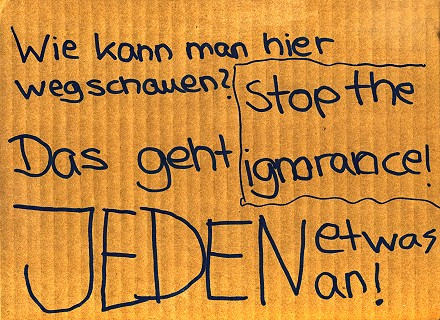 Wie kann man hier
wegschauen?
Stop the
ignorance!
Das geht
JEDEN etwas
an!